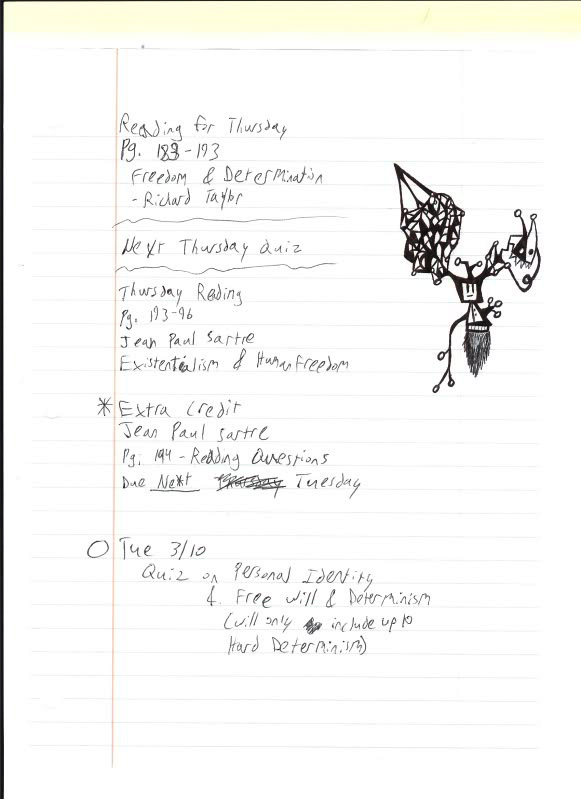 Reading for Thursday
Pg. 183-193
Freedom & Determination
- Richard Taylor
Next Thursday Quiz
Thursday Reading
Pg. 193-96
Jean Paul Sartre
Existentialism & Human Freedom
* Extra Credit
Jean Paul Sartre
Pg. 194 - Reading Questions
Due Next Tuesday
Tue 3/10
Quiz on Personal Identity
& Free will & Determinism
(will only include up to
Hard Determinism)